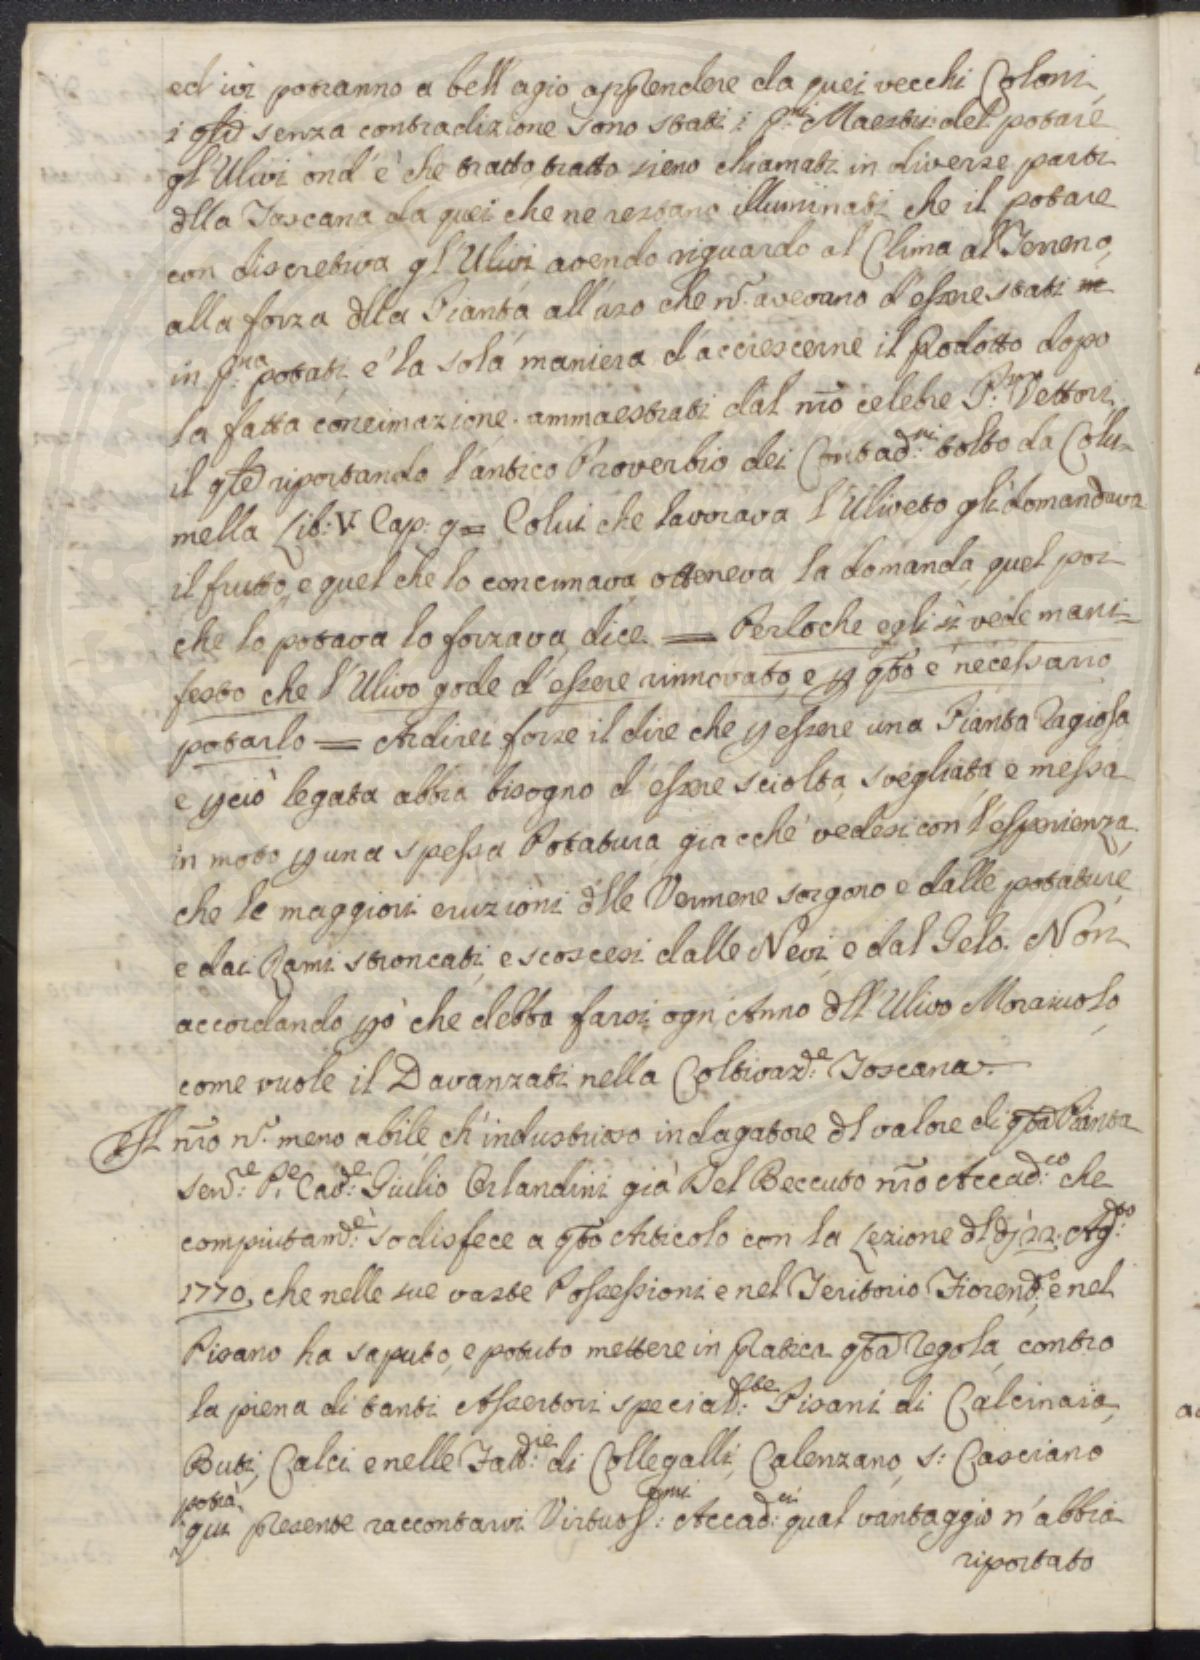 ed ivi potranno a bell'agio apprendere da quei vecchi Coloni,
i qli senza contradizione sono stati i p:mi Maestri del potare
gl'Ulivi ond'è che tratto, tratto sieno chiamati in diverse parti
dlla Toscana da quei che ne restano illuminati che il potare
con discretiva gl'Ulivi avendo riguardo al Clima al Terreno,
alla forza dlla Pianta all'uso che n. avevano d'essere stati in
in p:ma potati è la sola maniera d'accrescerne il Prodotto dopo
la fatta concimazione. ammaestrati dal nro celebre P: Vettori,
il qle riportando l'antico Proverbio dei Contad:ni tolto da Colu-
mella Lib: V. Cap: 9 = Colui che lavorava l'Uliveto gli domandava
il frutto, e quel che lo concimava otteneva la domanda, quel poi
che lo potava lo forzava, dice. = Perloche egli si vede mani=
festo che l'Ulivo gode d'essere rinnovato, e p qto è necessario
potarlo = Ardirei forse il dire che p essere una Pianta Ragiosa
e pciò legata abbia bisogno d'essere sciolta, svegliata, e messa
in moto p una spessa Potatura, giacchè vedesi con l'esperienza,
che le maggiori eruzioni dlle Vermene sorgono e dalle potature,
e dai Rami stroncati, e scoscesi dalle Nevi, e dal Gelo. Non
accordando pò che debba farsi ogn'Anno dll'Ulivo Morajuolo,
come vuole il Davanzati nella Coltivaz:e Toscana.
Il nro n. meno abile, ch'industrioso indagatore dl valore di qta Pianta
Sen:e P:e Cav:e Giulio Orlandini già Del Beccuto nro Accad:co che
compiutam:e sodisfece a qto Articolo con la Lezione dl dì 22. Ag:to
1770, che nelle sue vaste Possessioni e nel Teritorio Fioren:o, e nel
Pisano ha saputo, e potuto mettere in Pratica qta Regola, contro
la piena di tanti Assertori special:te Pisani di Calcinaia,
Buti, Calci e nelle Fatt:rie di Collegalli, Calenzano, S: Casciano
potrà,
qui presente raccontarvi Virtuos:mi Accad:ci qual vantaggio n'abbia
riportato